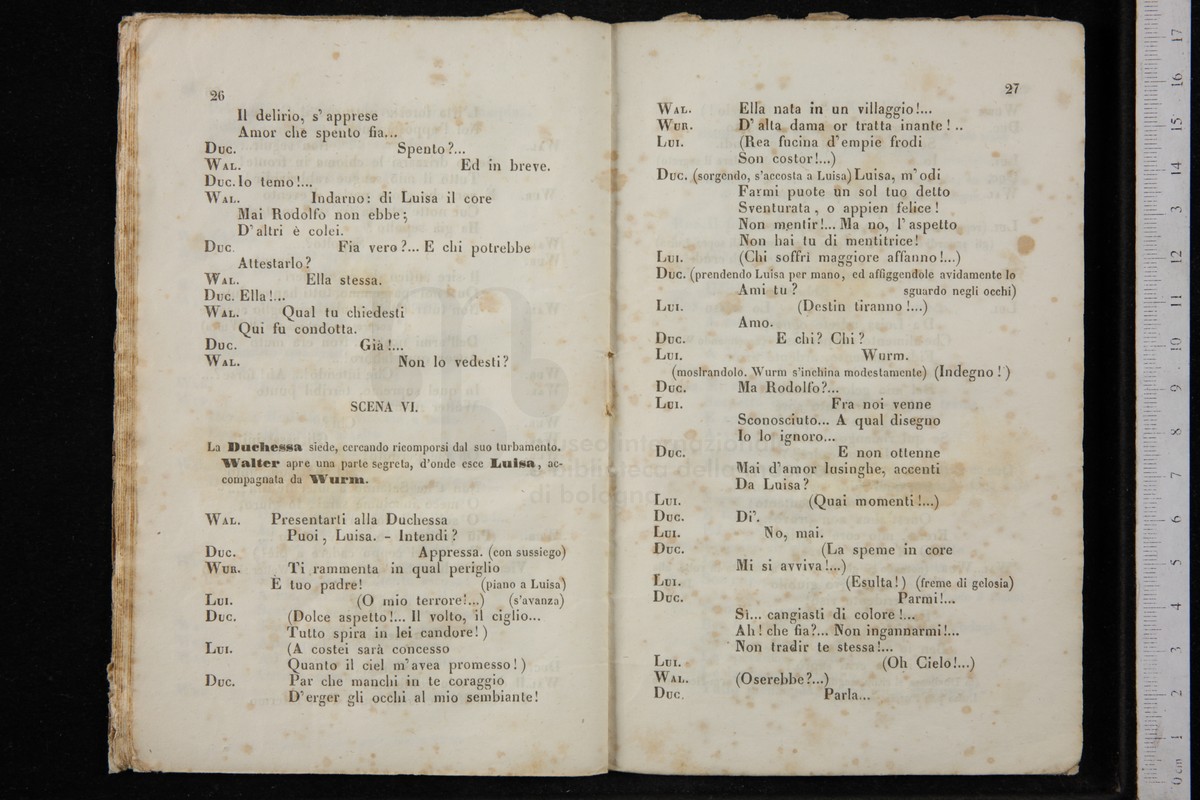 26
Il delirio, s' apprese
Amor che spento fia...
Duc. Spento?...
Wal. Ed in breve.
Duc. Io temo!...
Wal. Indarno: di Luisa il core
Mai Rodolfo non ebbe;
D' altri è colei.
Duc. Fia vero?... E chi potrebbe
Attestarlo?
Wal. Ella stessa.
Duc. Ella!...
Wal. Qual tu chiedesti
Qui fu condotta.
Duc. Già!...
Wal. Non lo vedesti?
SCENA VI.
La Duchessa siede, cercando ricomporsi dal suo turbamento.
Walter apre una parte segreta, d'onde esce Luisa, ac-
compagnata da Wurm.
Wal. Presentarti alla Duchessa
Puoi, Luisa. - Intendi?
Duc. Appressa. (con sussiego)
Wur. Ti rammenta in qual periglio
È tuo padre! (piano a Luisa)
Lui. (O mio terrore!...) (s'avanza)
Duc. (Dolce aspetto!... Il volto, il ciglio...
Tutto spira in lei candore!)
Lui. (A costei sarà concesso
Quanto il ciel m' avea promesso!)
Duc. Par che manchi in te coraggio
D' erger gli occhi al mio sembiante!
27
Wal. Ella nata in un villaggio!...
Wur. D' alta dama or tratta inante! ..
Lui. (Rea fucina d' empie frodi
Son costor!...)
Duc. (sorgendo, s'accosta a Luisa) Luisa, m' odi
Farmi puote un sol tuo detto
Sventurata, o appien felice!
Non mentir!... Ma no, l' aspetto
Non hai tu di mentitrice!
Lui. (Chi soffrì maggiore affanno!...)
Duc. (prendendo Luisa per mano, ed affiggendole avidamente lo
Ami tu? sguardo negli occhi)
Lui. (Destin tiranno!...)
Amo.
Duc. E chi? Chi?
Lui. Wurm.
(mostrandolo. Wurm s'inchina modestamente) (Indegno!)
Duc. Ma Rodolfo?...
Lui. Fra noi venne
Sconosciuto... A qual disegno
Io lo ignoro...
Duc. E non ottenne
Mai d' amor lusinghe, accenti
Da Luisa?
Lui. (Quai momenti!...)
Duc. Di'.
Lui. No, mai.
Duc. (La speme in core
Mi si avviva!...)
Lui. (Esulta!) (freme di gelosia)
Duc. Parmi!...
Sì... cangiasti di colore!...
Ah! che fia?... Non ingannarmi!...
Non tradir te stessa!...
Lui. (Oh Cielo!...)
Wal. (Oserebbe?...)
Duc. Parla...
museo internazionale
e biblioteca della
di bologna
0 cm 1 2 3 4 5 6 7 8 9 10 11 12 13 14 15 16 17